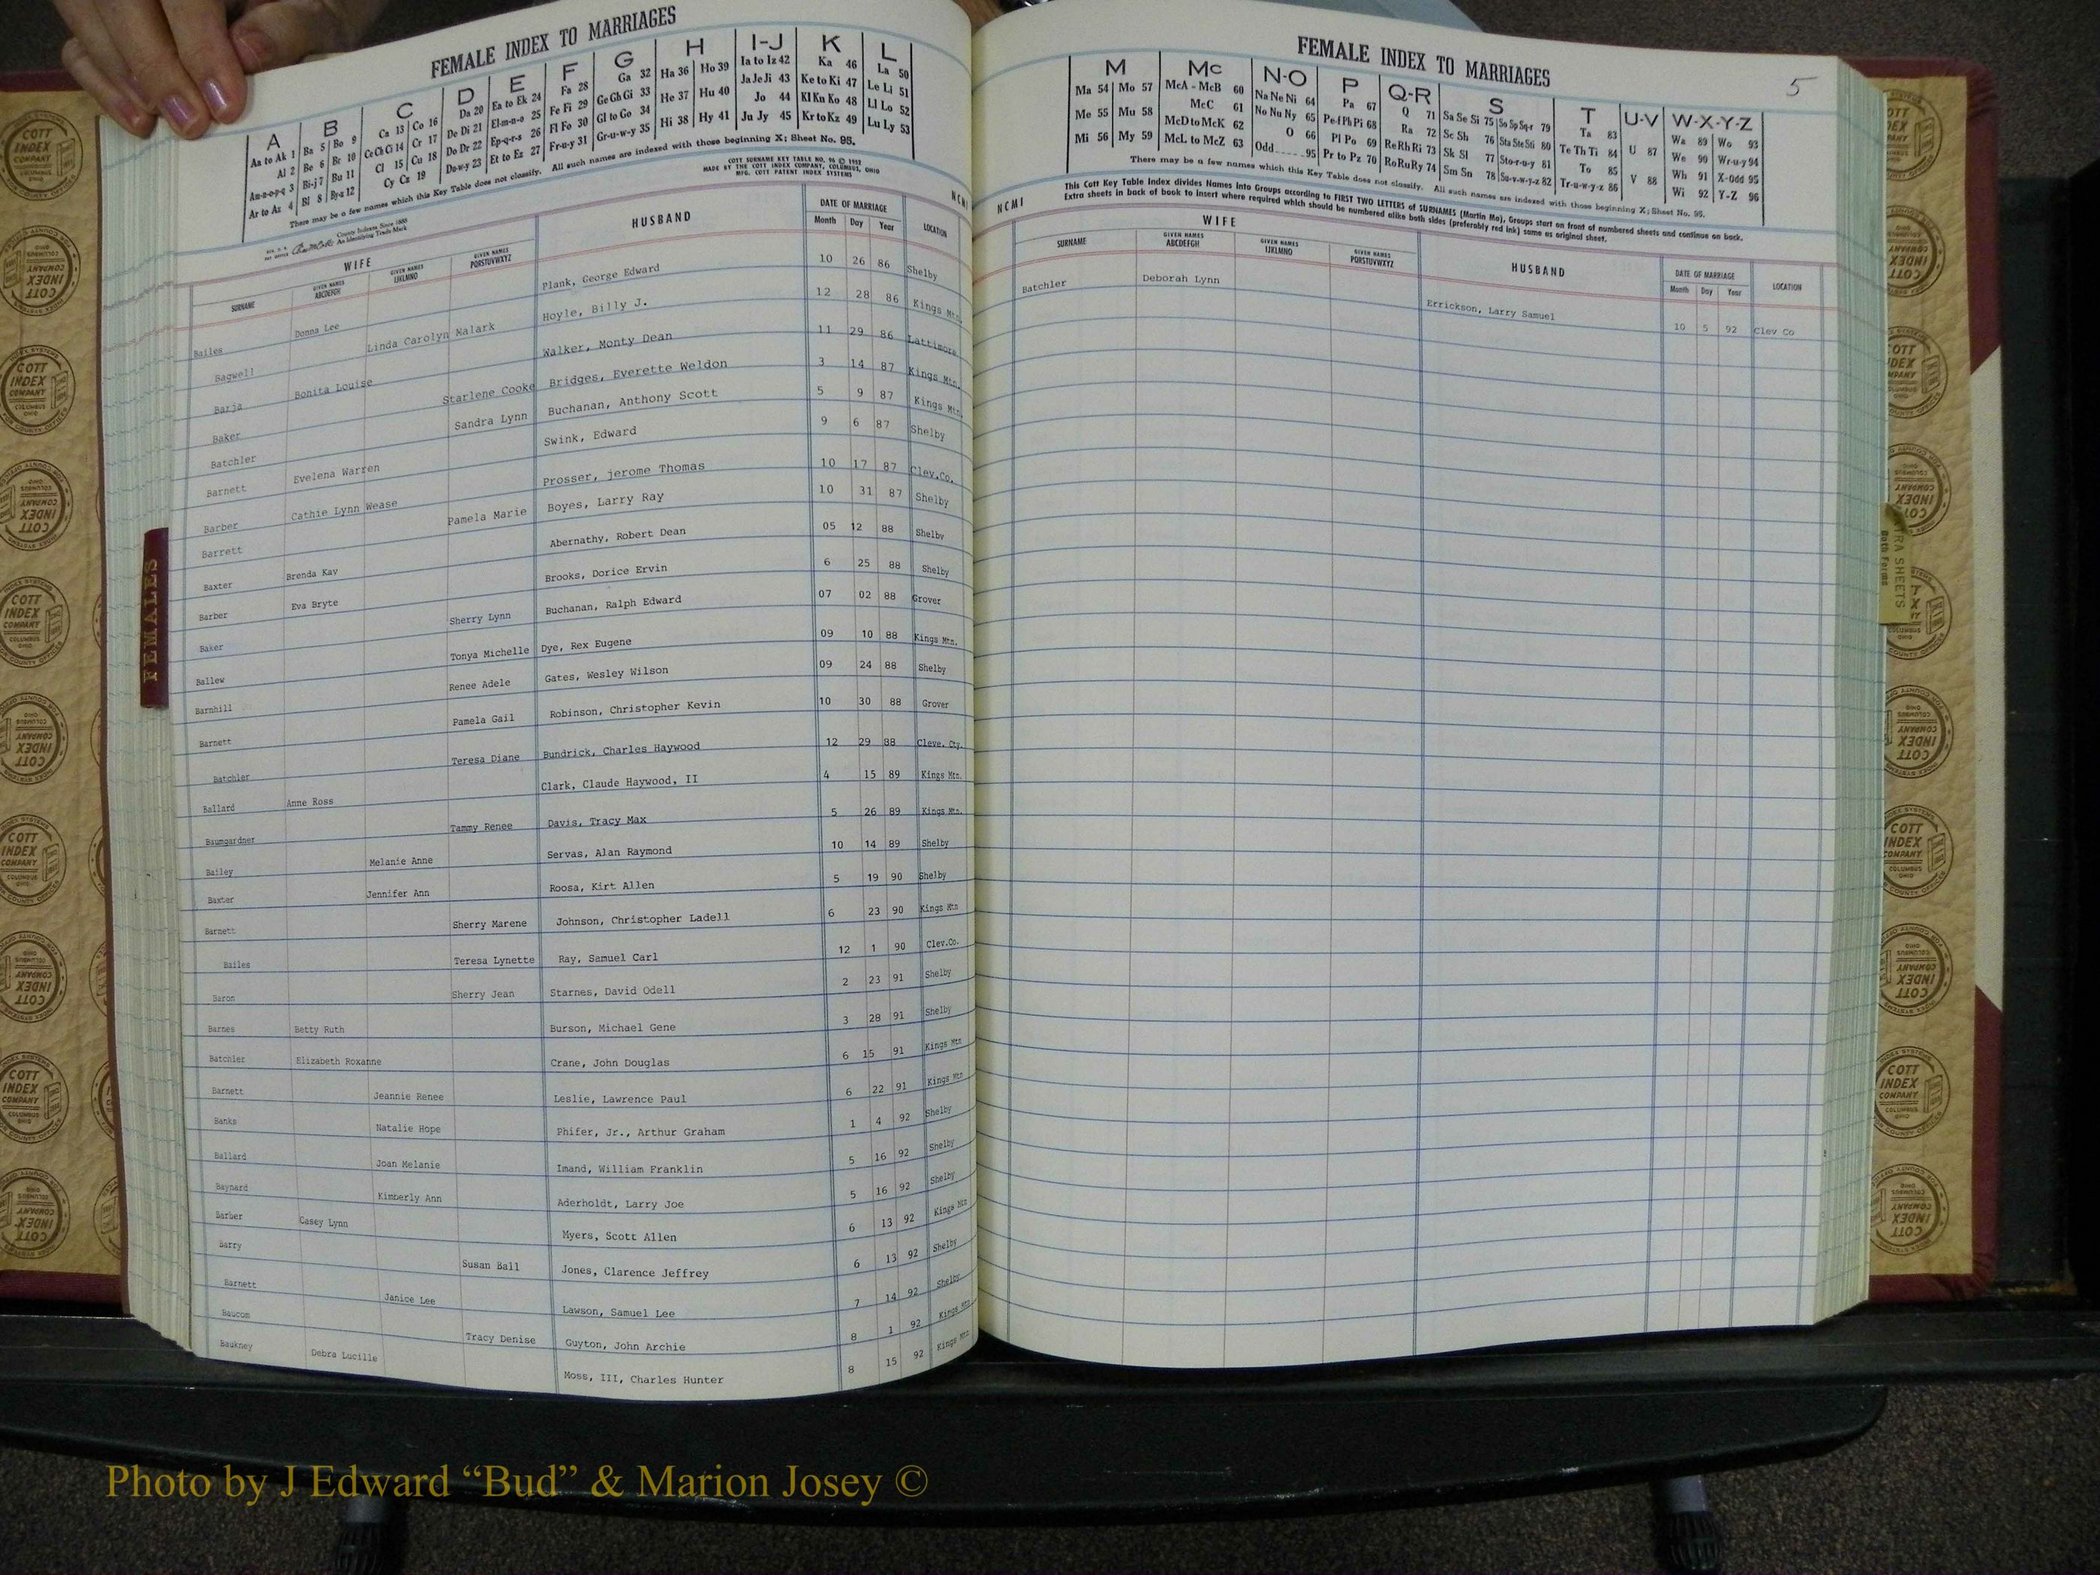 FEMALE INDEX TO MARRIAGES
A B C D E F G H I-J K L
Aa to Ak 1 Ba 5 Bo 9 Ca 13 Co 16 Da 20 Ea to Ek 24 Fa 28 Ga 32 Ha 36 Ho 39 Ia to Iz 42 Ka 46 La 50
Al 2 Be 6 Br 10 Ce Ch Ci 14 Cr 17 De Di 21 El-m-n-o 25 Fe Fi 29 Ge Gh Gi 33 He 37 Hu 40 Ja Je Ji 43 Ke to Ki 47 Le Li 51
Am-n-o-p-q 3 Bi-j 7 Bu 11 Cl 15 Cu 18 Do Dr 22 Ep-q-r-s 26 Fl Fo 30 Gl to Go 34 Hi 38 Hy 41 Jo 44 Kl Kn Ko 48 Ll Lo 52
Ar to Az 4 Bl 8 By-z 12 Cy Cz 19 Du-w-y 23 Et to Ez 27 Fr-u-y 31 Gr-u-w-y 35 Ju Jy 45 Kr to Kz 49 Lu Ly 53
There may be a few names which this Key Table does not classify. All such names are indexed with those beginning X; Sheet No. 95.
County Indexes Since 1888
An Identifying Trade Mark
COTT SURNAME KEY TABLE NO. 96 © 1957
MADE BY THE COTT INDEX COMPANY, COLUMBUS, OHIO
MFG. COTT PATENT INDEX SYSTEMS
NCMI
WIFE HUSBAND DATE OF MARRIAGE LOCATION
SURNAME GIVEN NAMES ABCDEFGH GIVEN NAMES IJKLMNO GIVEN NAMES PQRSTUVWXYZ Month Day Year
Bailes Donna Lee Plank, George Edward 10 26 86 Shelby
Bagwell Linda Carolyn Malark Hoyle, Billy J. 12 28 86 Kings Mtn.
Barja Bonita Louise Walker, Monty Dean 11 29 86 Lattimore
Baker Starlene Cooke Bridges, Everette Weldon 3 14 87 Kings Mtn.
Batchler Sandra Lynn Buchanan, Anthony Scott 5 9 87 Kings Mtn.
Barnett Evelena Warren Swink, Edward 9 6 87 Shelby
Barber Cathie Lynn Wease Prosser, jerome Thomas 10 17 87 Clev.Co.
Barrett Pamela Marie Boyes, Larry Ray 10 31 87 Shelby
Baxter Brenda Kay Abernathy, Robert Dean 05 12 88 Shelby
Barber Eva Bryte Brooks, Dorice Ervin 6 25 88 Shelby
Baker Sherry Lynn Buchanan, Ralph Edward 07 02 88 Grover
Ballew Tonya Michelle Dye, Rex Eugene 09 10 88 Kings Mtn.
Barnhill Renee Adele Gates, Wesley Wilson 09 24 88 Shelby
Barnett Pamela Gail Robinson, Christopher Kevin 10 30 88 Grover
Batchler Teresa Diane Bundrick, Charles Haywood 12 29 88 Cleve. Cty.
Ballard Anne Ross Clark, Claude Haywood, II 4 15 89 Kings Mtn.
Baumgardner Tammy Renee Davis, Tracy Max 5 26 89 Kings Mtn.
Bailey Melanie Anne Servas, Alan Raymond 10 14 89 Shelby
Baxter Jennifer Ann Roosa, Kirt Allen 5 19 90 Shelby
Barnett Sherry Marene Johnson, Christopher Ladell 6 23 90 Kings Mtn
Bailes Teresa Lynette Ray, Samuel Carl 12 1 90 Clev.Co.
Baron Sherry Jean Starnes, David Odell 2 23 91 Shelby
Barnes Betty Ruth Burson, Michael Gene 3 28 91 Shelby
Batchler Elizabeth Roxanne Crane, John Douglas 6 15 91 Kings Mtn
Barnett Jeannie Renee Leslie, Lawrence Paul 6 22 91 Kings Mtn
Banks Natalie Hope Phifer, Jr., Arthur Graham 1 4 92 Shelby
Ballard Joan Melanie Imand, William Franklin 5 16 92 Shelby
Baynard Kimberly Ann Aderholdt, Larry Joe 5 16 92 Shelby
Barber Casey Lynn Myers, Scott Allen 6 13 92 Kings Mtn
Barry Susan Ball Jones, Clarence Jeffrey 6 13 92 Shelby
Barnett Janice Lee Lawson, Samuel Lee 7 14 92 Shelby
Baucom Tracy Denise Guyton, John Archie 8 1 92 Kings Mtn
Baukney Debra Lucille Moss, III, Charles Hunter 8 15 92 Kings Mtn
FEMALES
FEMALE INDEX TO MARRIAGES
5
M Mc N-O P Q-R S T U-V W-X-Y-Z
Ma 54 Mo 57 McA - McB 60 Na Ne Ni 64 Pa 67 Q 71 Sa Se Si 75 So Sp Sq-r 79 Ta 83 U 87 Wa 89 Wo 93
Me 55 Mu 58 McC 61 No Nu Ny 65 Pe-f Ph Pi 68 Ra 72 Sc Sh 76 Sta Ste Sti 80 Te Th Ti 84 V 88 We 90 Wr-u-y 94
Mi 56 My 59 McD to McK 62 O 66 Pl Po 69 Re Rh Ri 73 Sk Sl 77 Sto-r-u-y 81 To 85 Wh 91 X-Odd 95
McL to McZ 63 Odd 95 Pr to Pz 70 Ro Ru Ry 74 Sm Sn 78 Su-v-w-y-z 82 Tr-u-w-y-z 86 Wi 92 Y-Z 96
There may be a few names which this Key Table does not classify. All such names are indexed with those beginning X; Sheet No. 95.
This Cott Key Table Index divides Names into Groups according to FIRST TWO LETTERS of SURNAMES (Martin Mo), Groups start on front of numbered sheets and continue on back.
Extra sheets in back of book to insert where required which should be numbered alike both sides (preferably red ink) same as original sheet.
NCMI
WIFE HUSBAND DATE OF MARRIAGE LOCATION
SURNAME GIVEN NAMES ABCDEFGH GIVEN NAMES IJKLMNO GIVEN NAMES PQRSTUVWXYZ Month Day Year
Batchler Deborah Lynn Errickson, Larry Samuel 10 5 92 Clev Co
COTT INDEX COMPANY COLUMBUS OHIO
Photo by J Edward “Bud” & Marion Josey ©